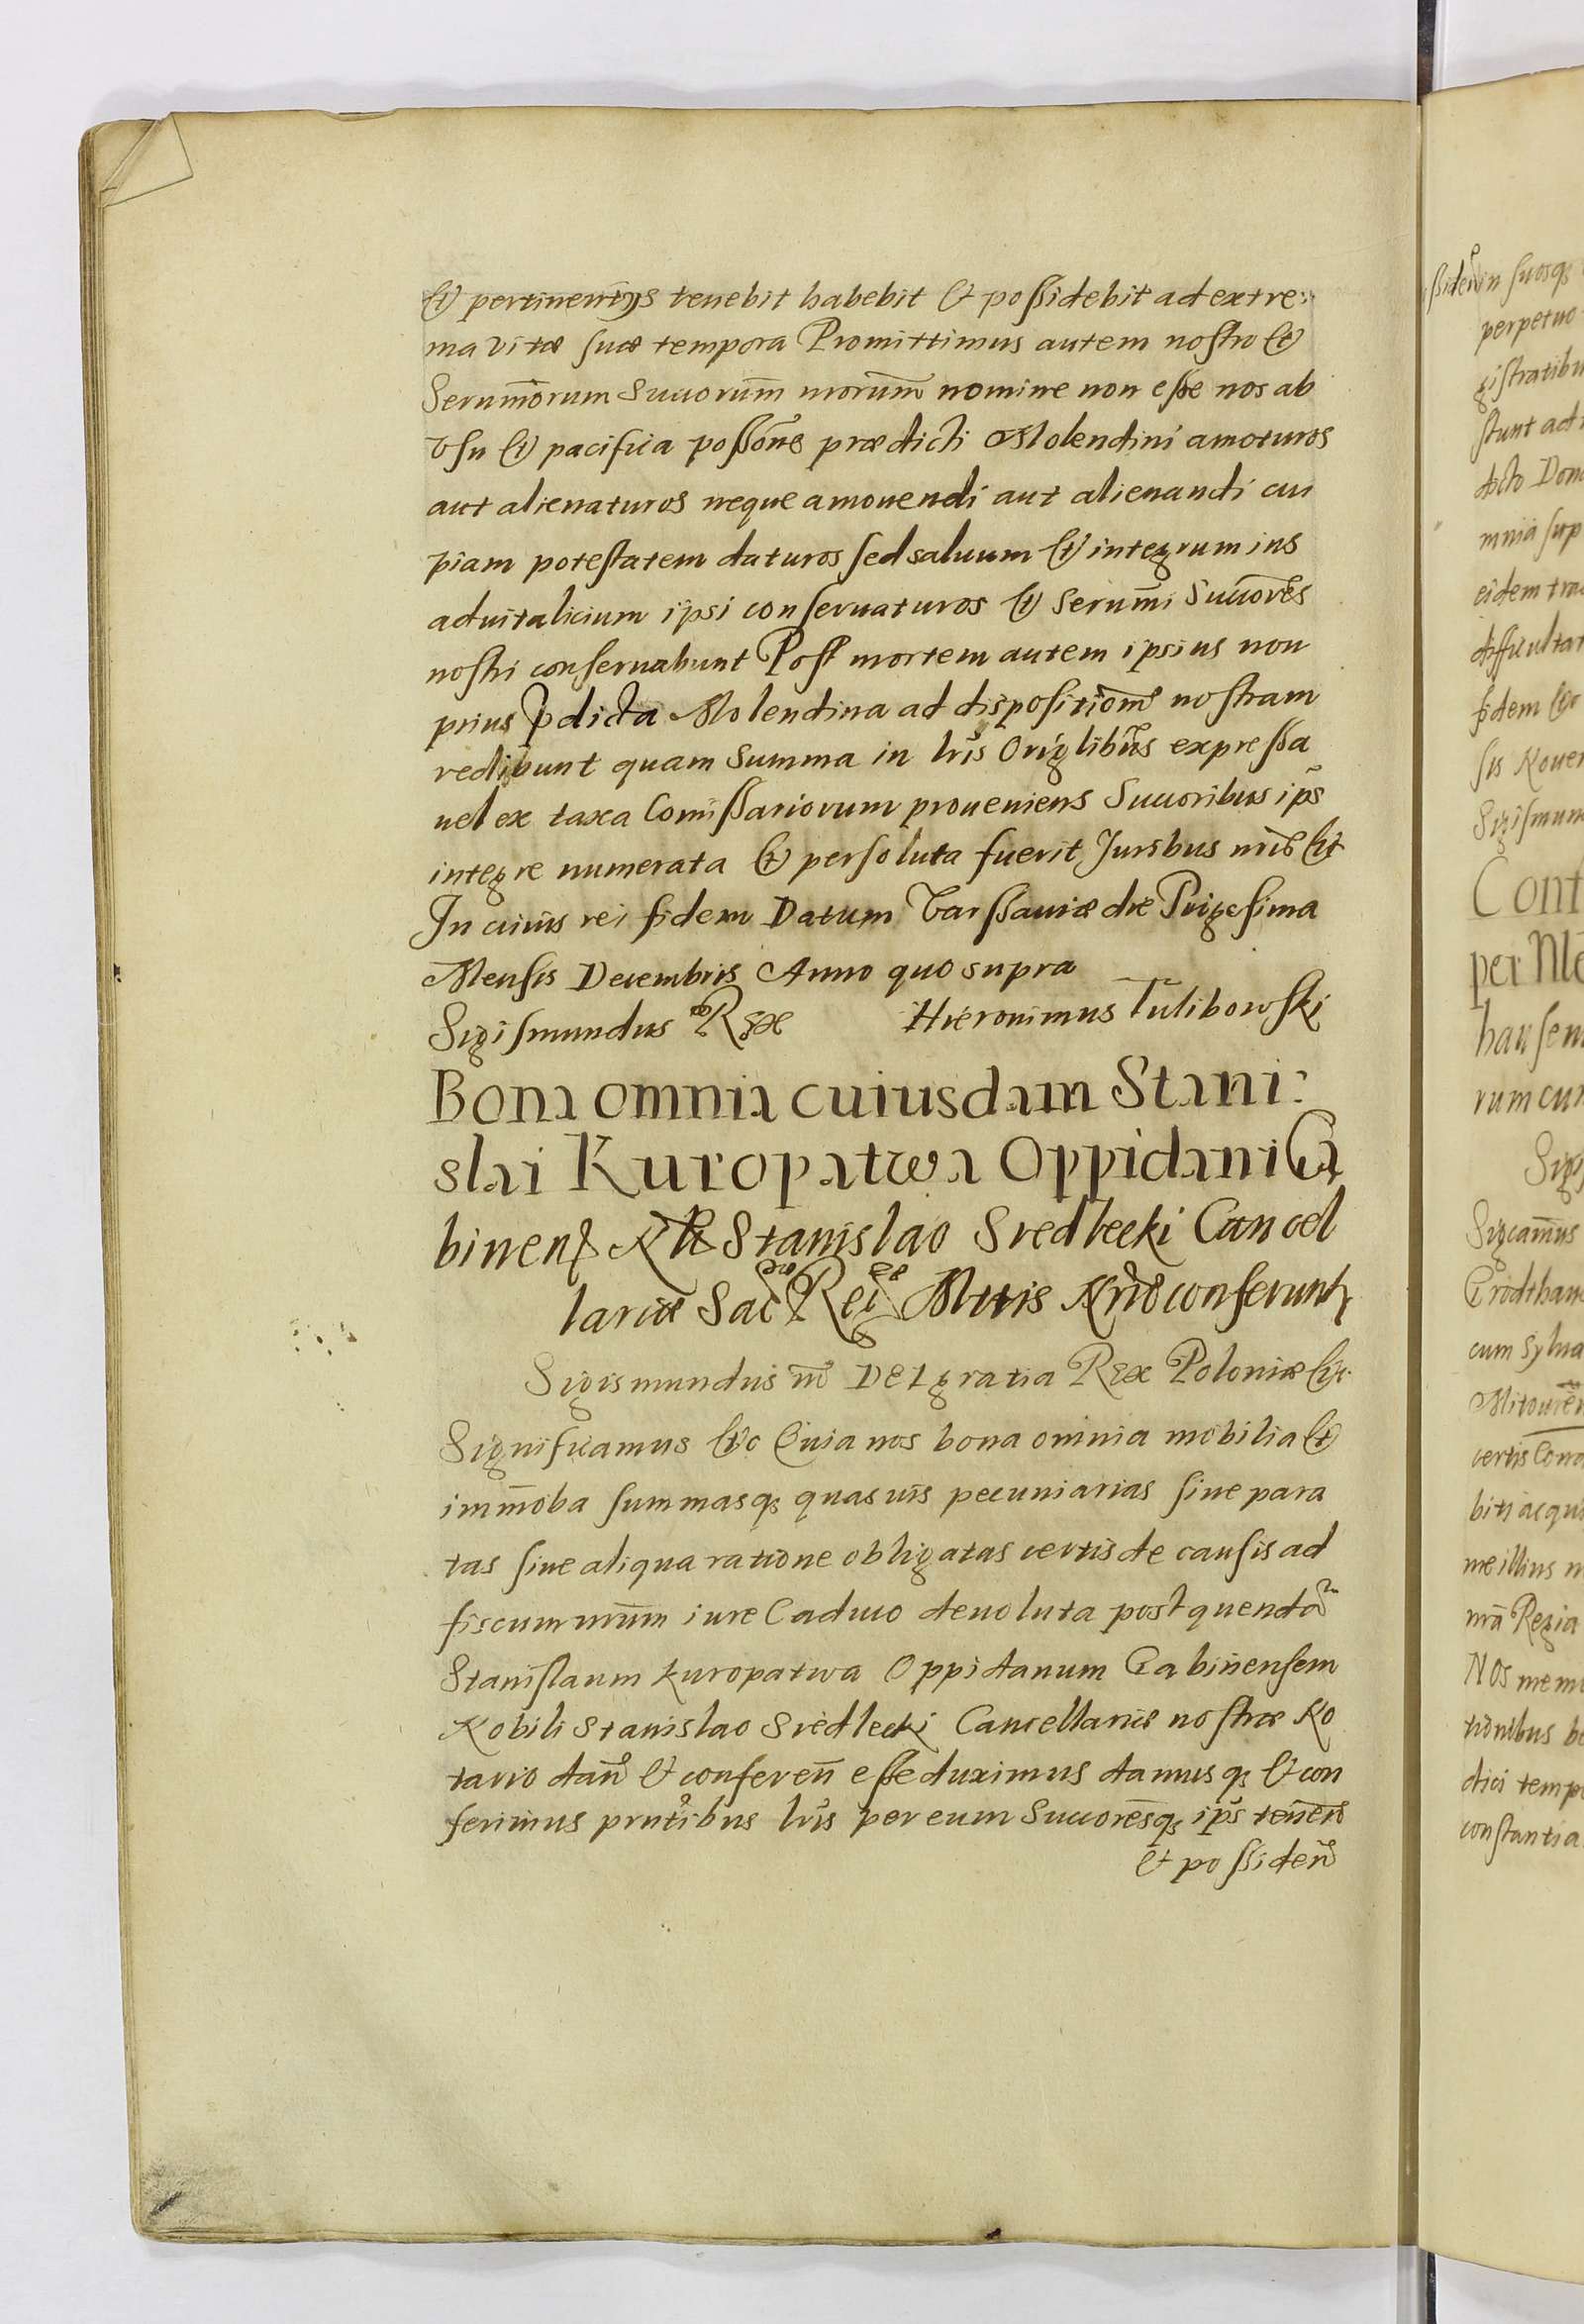 et pertinentijs tenebit habebit et possidebit ad extre:
ma vitæ suæ tempora Promittimus autem nostro et
Serenm̄orum Succorum̄ nrorum̄ nomine non esse nos ab
vsu et pacifica possōne prædicti Molendini amoturos
aut alienaturos neque amouendi aut alienandi cui
piam potestatem daturos sed saluum et integrum ius
aduitalicium ipsi conseruaturos et Serenm̄i Succores
nostri conseruabunt Post mortem autem ipsius non
prius p̄dicta Molendina ad dispositionē nostram
redibunt quam Summa in lris Origlibus expressa
uel ex taxa Comissariorum proueniens Succoribus ips̄
integre numerata et persoluta fuerit Juribus nris etc
In cuius rei fidem Datum Varssauiæ die Vigesima
Mensis Decembris Anno quo supra
Sigismundus Rex Hieronimus Tulibowski
Bona omnia cuiusdam Stani:
slai Kuropatwa Oppidani Ga
binens Nli Stanislao Sredlecki Cancel
lariæ Sac Reg Mttis Nrio conferuntr
Sigismundus 3us DEI gratia Rex Poloniæ etc.
Significamus etc Quia nos bona omnia mobilia et
imm̄oba summasq3 quasuis pecuniarias siue para
tas siue aliqua ratione obligatas certis de causis ad
fiscum nrum̄ iure Caduco deuoluta post quendam
Stanislaum Kuropatwa Oppidanum Gabinensem
Nobili Stanislao Sredlecki Cancellariæ nostræ No
tario dan̄ et conferen̄ esse duximus damusq3 et con
ferimus prntibus lris per eum Succoresq3 ips̄ tenen̄
et possiden̄
ssiden̄ in suosq3
perpetuo
gistratibu
stunt ad
dicto Dom
mnia sup
eidem tra
difficultat
fidem etc
sis Nouem
Sigismun
Cont
per Me
hausem
rum cum
Sigi
Sigcam̄us
Grodthaus
cum Sylua
certis Cond
biti acqui
me illius n
nrā Regia
NOs memo
tionibus bo
dici tempo
constantia